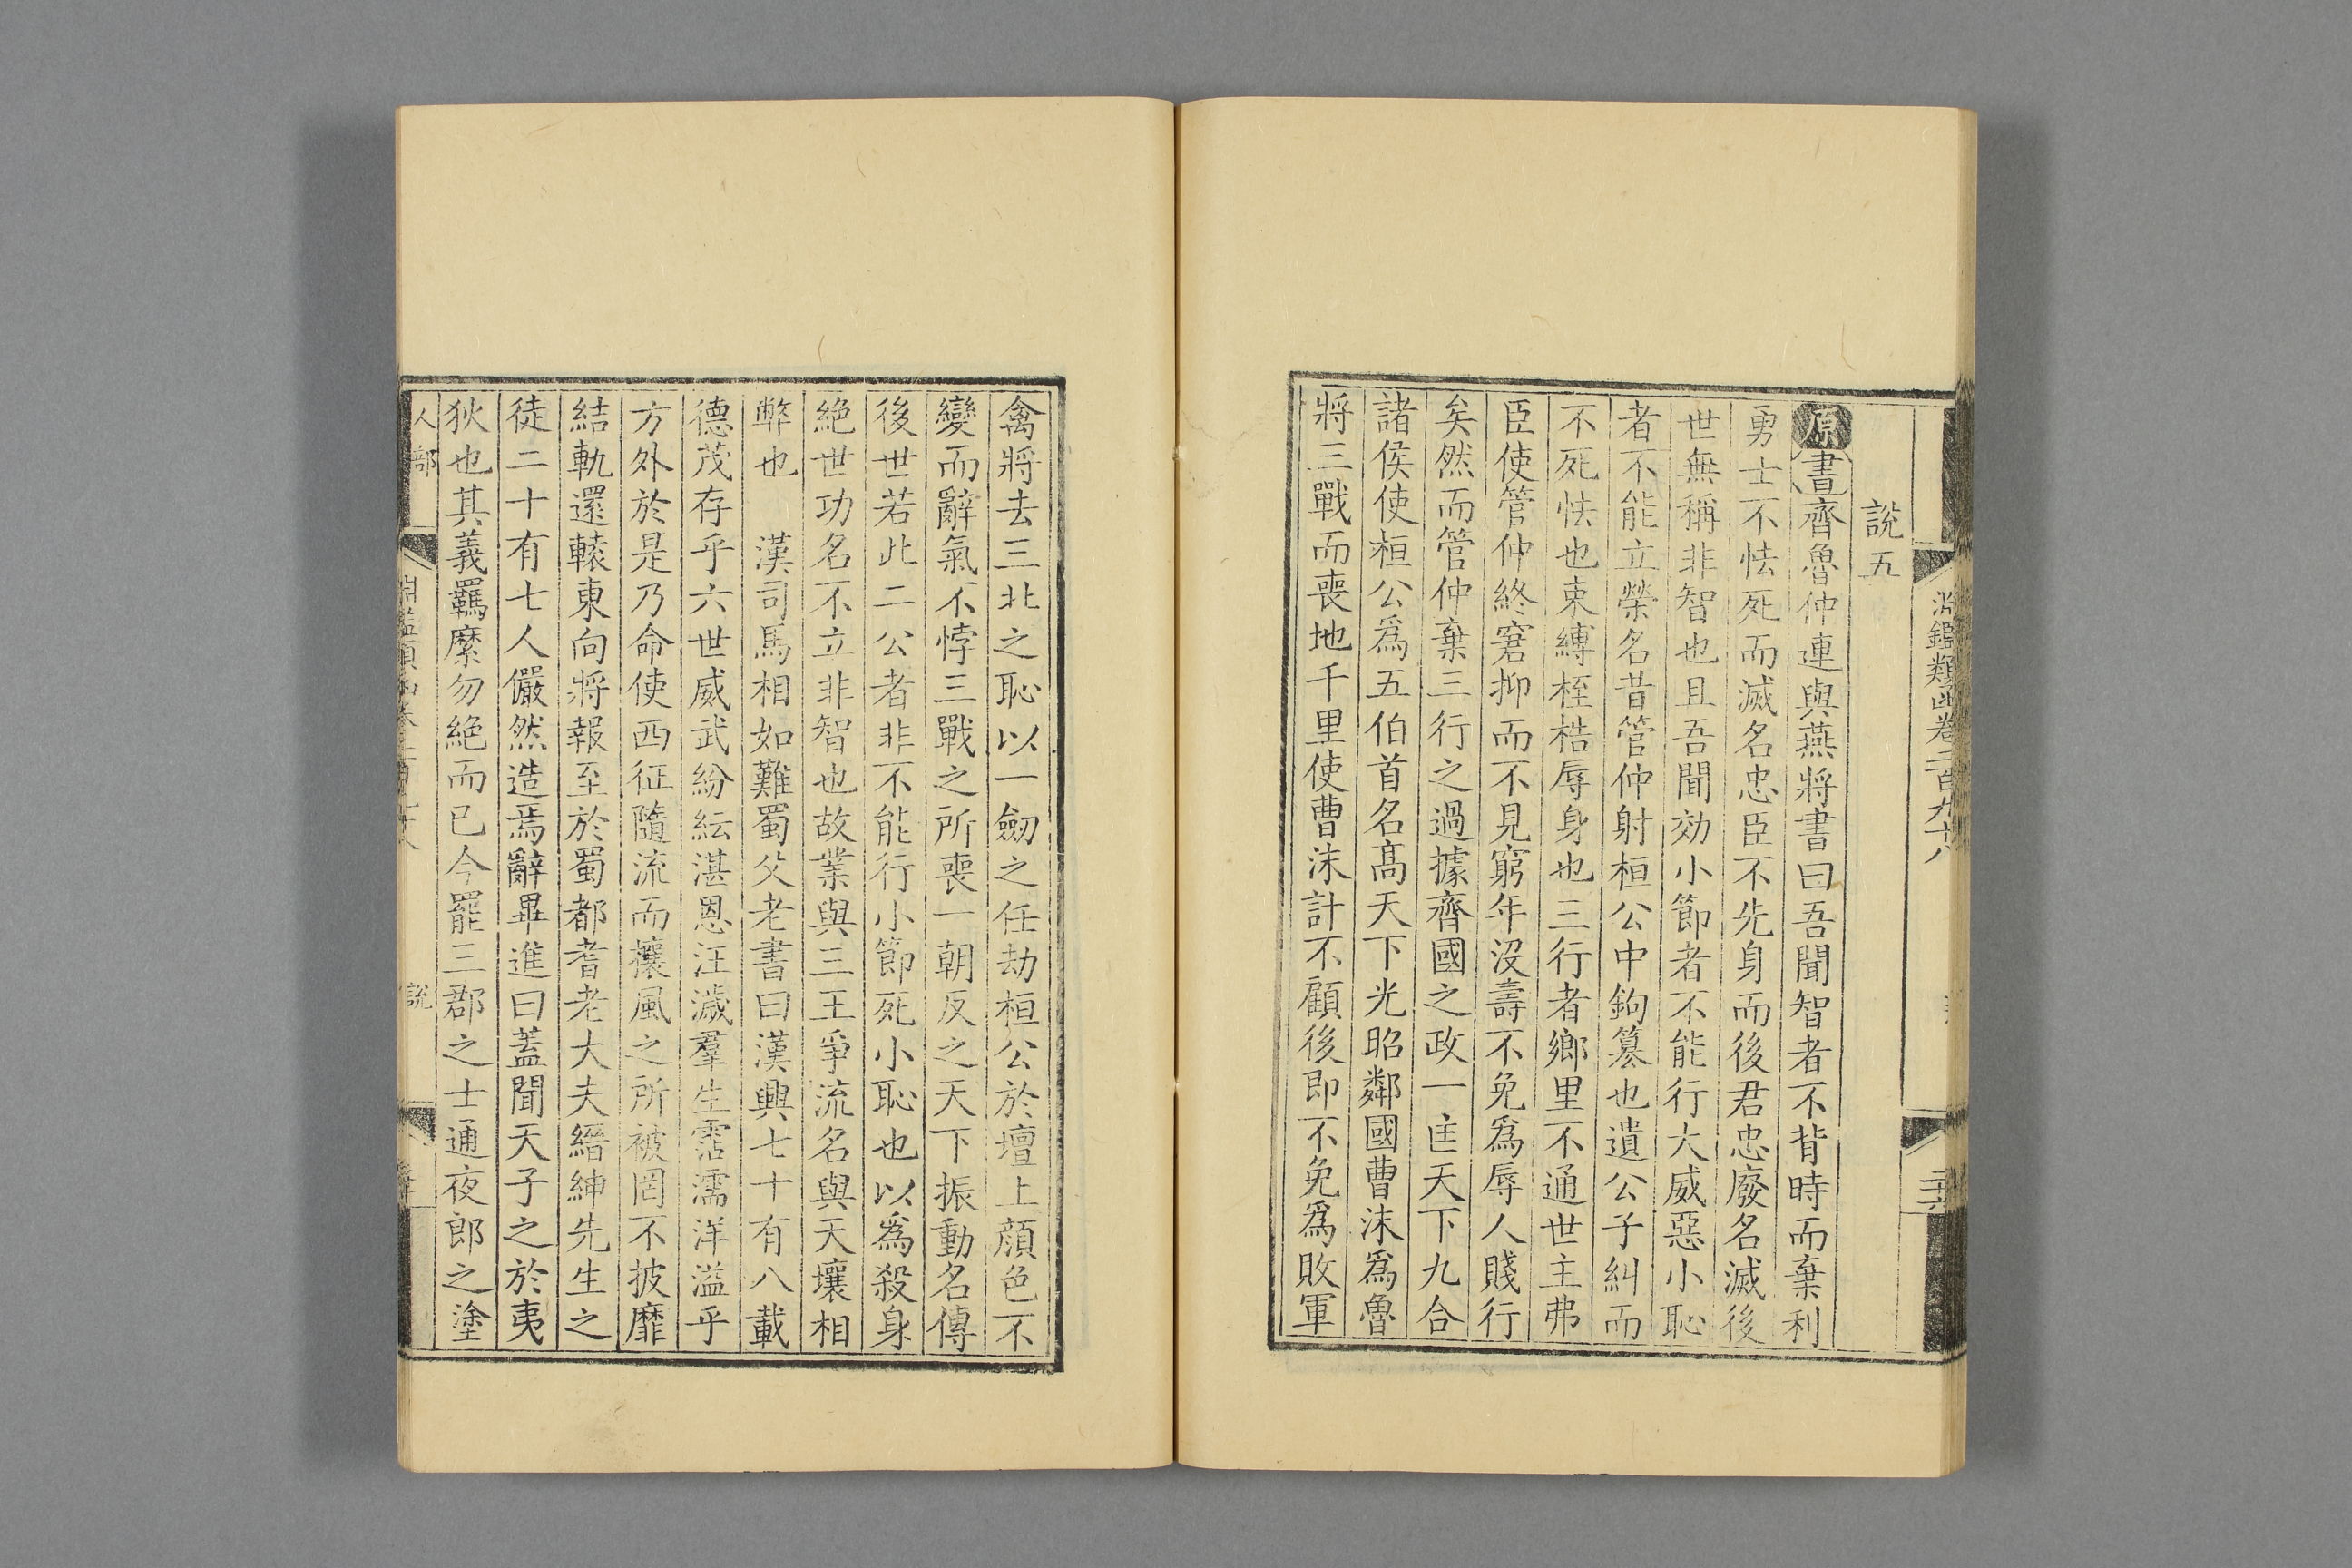 淵鑑類函卷二百九十八
說五
原書齊魯仲連與燕將書曰吾聞智者不背時而棄利
勇士不怯死而滅名忠臣不先身而後君忠廢名滅後
世無稱非智也且吾聞効小節者不能行大威惡小恥
者不能立榮名昔管仲射桓公中鉤篡也遺公子糾而
不死怯也束縛桎梏辱身也三行者鄉里不通世主弗
臣使管仲終窘抑而不見窮年沒壽不免爲辱人賤行
矣然而管仲棄三行之過據齊國之政一匡天下九合
諸侯使桓公爲五伯首名髙天下光昭鄰國曹沫爲魯
將三戰而喪地千里使曹沫計不顧後即不免爲敗軍
禽將去三北之恥以一劒之任劫桓公於壇上顔色不
變而辭氣不悖三戰之所喪一朝反之天下振動名傳
後世若此二公者非不能行小節死小恥也以爲殺身
絶世功名不立非智也故業與三王爭流名與天壤相
弊也　漢司馬相如難蜀父老書曰漢興七十有八載
德茂存乎六世威武紛紜湛恩汪濊羣生霑濡洋溢乎
方外於是乃命使西征隨流而攘風之所被罔不披靡
結軌還轅東向將報至於蜀都耆老大夫縉紳先生之
徒二十有七人儼然造焉辭畢進曰蓋聞天子之於夷
狄也其義羈縻勿絶而已今罷三郡之士通夜郎之塗
人部
說